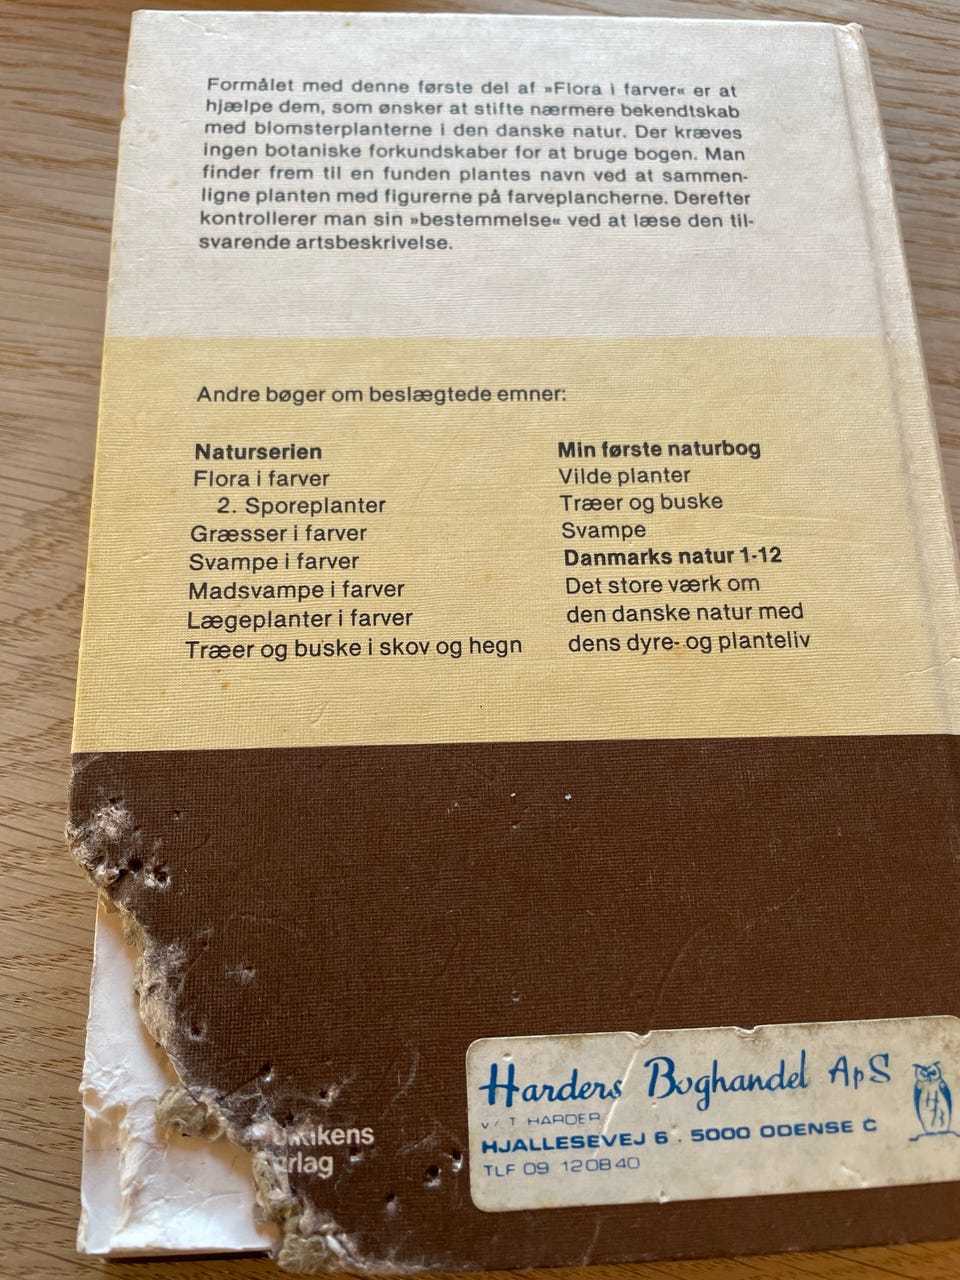 Formålet med denne første del af »Flora i farver« er at
hjælpe dem, som ønsker at stifte nærmere bekendtskab
med blomsterplanterne i den danske natur. Der kræves
ingen botaniske forkundskaber for at bruge bogen. Man
finder frem til en funden plantes navn ved at sammen-
ligne planten med figurerne på farveplancherne. Derefter
kontrollerer man sin »bestemmelse« ved at læse den til-
svarende artsbeskrivelse.
Andre bøger om beslægtede emner:
Naturserien
Flora i farver
2. Sporeplanter
Græsser i farver
Svampe i farver
Madsvampe i farver
Lægeplanter i farver
Træer og buske i skov og hegn
Min første naturbog
Vilde planter
Træer og buske
Svampe
Danmarks natur 1-12
Det store værk om
den danske natur med
dens dyre- og planteliv
Harders Boghandel ApS
v/ T HARDER
HJALLESEVEJ 6 . 5000 ODENSE C
TLF 09 120840